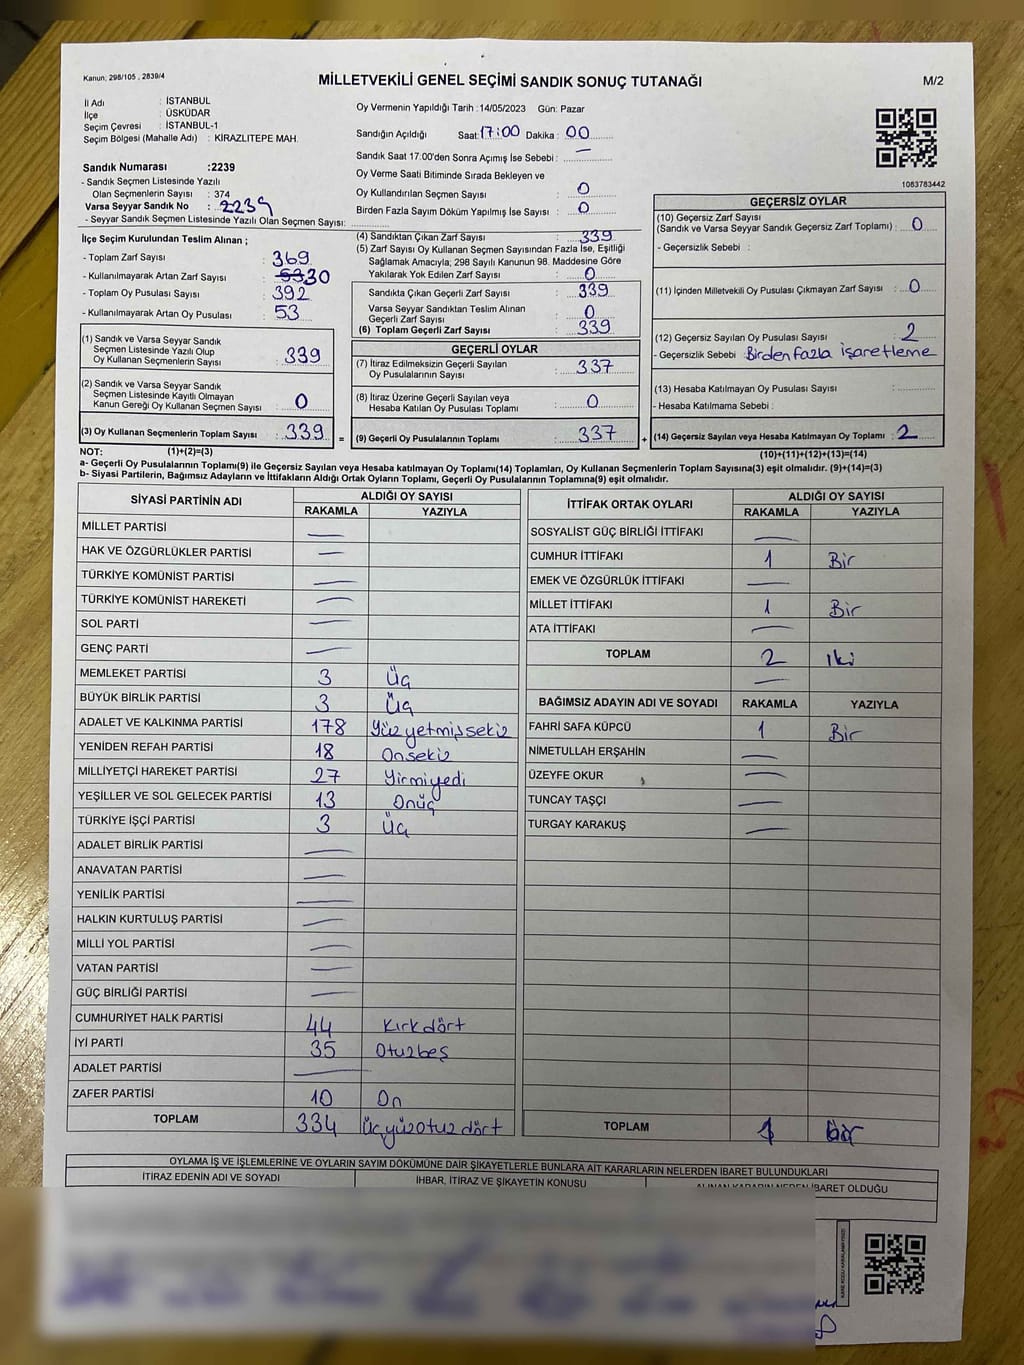 Kanun: 298/105 , 2839/4
MİLLETVEKİLİ GENEL SEÇİMİ SANDIK SONUÇ TUTANAĞI
M/2
İl Adı : İSTANBUL
İlçe : ÜSKÜDAR
Seçim Çevresi : İSTANBUL-1
Seçim Bölgesi (Mahalle Adı) : KİRAZLITEPE MAH.
Sandık Numarası :2239
- Sandık Seçmen Listesinde Yazılı
Olan Seçmenlerin Sayısı : 374
Varsa Seyyar Sandık No : 2239
- Seyyar Sandık Seçmen Listesinde Yazılı Olan Seçmen Sayısı:
Oy Vermenin Yapıldığı Tarih :14/05/2023 Gün: Pazar
Sandığın Açıldığı Saat: 17:00 Dakika : 00
Sandık Saat 17:00'den Sonra Açımış İse Sebebi : —
Oy Verme Saati Bitiminde Sırada Bekleyen ve
Oy Kullandırılan Seçmen Sayısı : 0
Birden Fazla Sayım Döküm Yapılmış İse Sayısı : 0
1083783442
İlçe Seçim Kurulundan Teslim Alınan ;
- Toplam Zarf Sayısı : 369
- Kullanılmayarak Artan Zarf Sayısı : 30
- Toplam Oy Pusulası Sayısı : 392
- Kullanılmayarak Artan Oy Pusulası : 53
(1) Sandık ve Varsa Seyyar Sandık
Seçmen Listesinde Yazılı Olup
Oy Kullanan Seçmenlerin Sayısı : 339
(2) Sandık ve Varsa Seyyar Sandık
Seçmen Listesinde Kayıtlı Olmayan
Kanun Gereği Oy Kullanan Seçmen Sayısı : 0
(3) Oy Kullanan Seçmenlerin Toplam Sayısı : 339 =
(4) Sandıktan Çıkan Zarf Sayısı : 339
(5) Zarf Sayısı Oy Kullanan Seçmen Sayısından Fazla İse, Eşitliği
Sağlamak Amacıyla; 298 Sayılı Kanunun 98. Maddesine Göre
Yakılarak Yok Edilen Zarf Sayısı : 0
Sandıkta Çıkan Geçerli Zarf Sayısı : 339
Varsa Seyyar Sandıktan Teslim Alınan
Geçerli Zarf Sayısı : 0
(6) Toplam Geçerli Zarf Sayısı : 339
GEÇERLİ OYLAR
(7) İtiraz Edilmeksizin Geçerli Sayılan
Oy Pusulalarının Sayısı : 337
(8) İtiraz Üzerine Geçerli Sayılan veya
Hesaba Katılan Oy Pusulası Toplamı : 0
(9) Geçerli Oy Pusulalarının Toplamı : 337 +
GEÇERSİZ OYLAR
(10) Geçersiz Zarf Sayısı
(Sandık ve Varsa Seyyar Sandık Geçersiz Zarf Toplamı) : 0
- Geçersizlik Sebebi :
(11) İçinden Milletvekili Oy Pusulası Çıkmayan Zarf Sayısı : 0
(12) Geçersiz Sayılan Oy Pusulası Sayısı : 2
- Geçersizlik Sebebi : Birden fazla işaretleme
(13) Hesaba Katılmayan Oy Pusulası Sayısı :
- Hesaba Katılmama Sebebi :
(14) Geçersiz Sayılan veya Hesaba Katılmayan Oy Toplamı : 2
NOT: (1)+(2)=(3) (10)+(11)+(12)+(13)=(14)
a- Geçerli Oy Pusulalarının Toplamı(9) ile Geçersiz Sayılan veya Hesaba katılmayan Oy Toplamı(14) Toplamları, Oy Kullanan Seçmenlerin Toplam Sayısına(3) eşit olmalıdır. (9)+(14)=(3)
b- Siyasi Partilerin, Bağımsız Adayların ve İttifakların Aldığı Ortak Oyların Toplamı, Geçerli Oy Pusulalarının Toplamına(9) eşit olmalıdır.
SİYASİ PARTİNİN ADI ALDIĞI OY SAYISI
RAKAMLA YAZIYLA
MİLLET PARTİSİ —
HAK VE ÖZGÜRLÜKLER PARTİSİ —
TÜRKİYE KOMÜNİST PARTİSİ —
TÜRKİYE KOMÜNİST HAREKETİ —
SOL PARTİ —
GENÇ PARTİ —
MEMLEKET PARTİSİ 3 Üç
BÜYÜK BİRLİK PARTİSİ 3 Üç
ADALET VE KALKINMA PARTİSİ 178 Yüzyetmişsekiz
YENİDEN REFAH PARTİSİ 18 Onsekiz
MİLLİYETÇİ HAREKET PARTİSİ 27 Yirmiyedi
YEŞİLLER VE SOL GELECEK PARTİSİ 13 Onüç
TÜRKİYE İŞÇİ PARTİSİ 3 Üç
ADALET BİRLİK PARTİSİ —
ANAVATAN PARTİSİ —
YENİLİK PARTİSİ —
HALKIN KURTULUŞ PARTİSİ —
MİLLİ YOL PARTİSİ —
VATAN PARTİSİ —
GÜÇ BİRLİĞİ PARTİSİ —
CUMHURİYET HALK PARTİSİ 44 Kırkdört
İYİ PARTİ 35 Otuzbeş
ADALET PARTİSİ —
ZAFER PARTİSİ 10 On
TOPLAM 334 üçyüzotuzdört
İTTİFAK ORTAK OYLARI ALDIĞI OY SAYISI
RAKAMLA YAZIYLA
SOSYALİST GÜÇ BİRLİĞİ İTTİFAKI —
CUMHUR İTTİFAKI 1 Bir
EMEK VE ÖZGÜRLÜK İTTİFAKI —
MİLLET İTTİFAKI 1 Bir
ATA İTTİFAKI —
TOPLAM 2 İki
—
BAĞIMSIZ ADAYIN ADI VE SOYADI RAKAMLA YAZIYLA
FAHRİ SAFA KÜPCÜ 1 Bir
NİMETULLAH ERŞAHİN —
ÜZEYFE OKUR —
TUNCAY TAŞÇI —
TURGAY KARAKUŞ —
TOPLAM 1 bir
OYLAMA İŞ VE İŞLEMLERİNE VE OYLARIN SAYIM DÖKÜMÜNE DAİR ŞİKAYETLERLE BUNLARA AİT KARARLARIN NELERDEN İBARET BULUNDUKLARI
İTİRAZ EDENİN ADI VE SOYADI İHBAR, İTİRAZ VE ŞİKAYETİN KONUSU ALINAN KARARIN NEDEN İBARET OLDUĞU